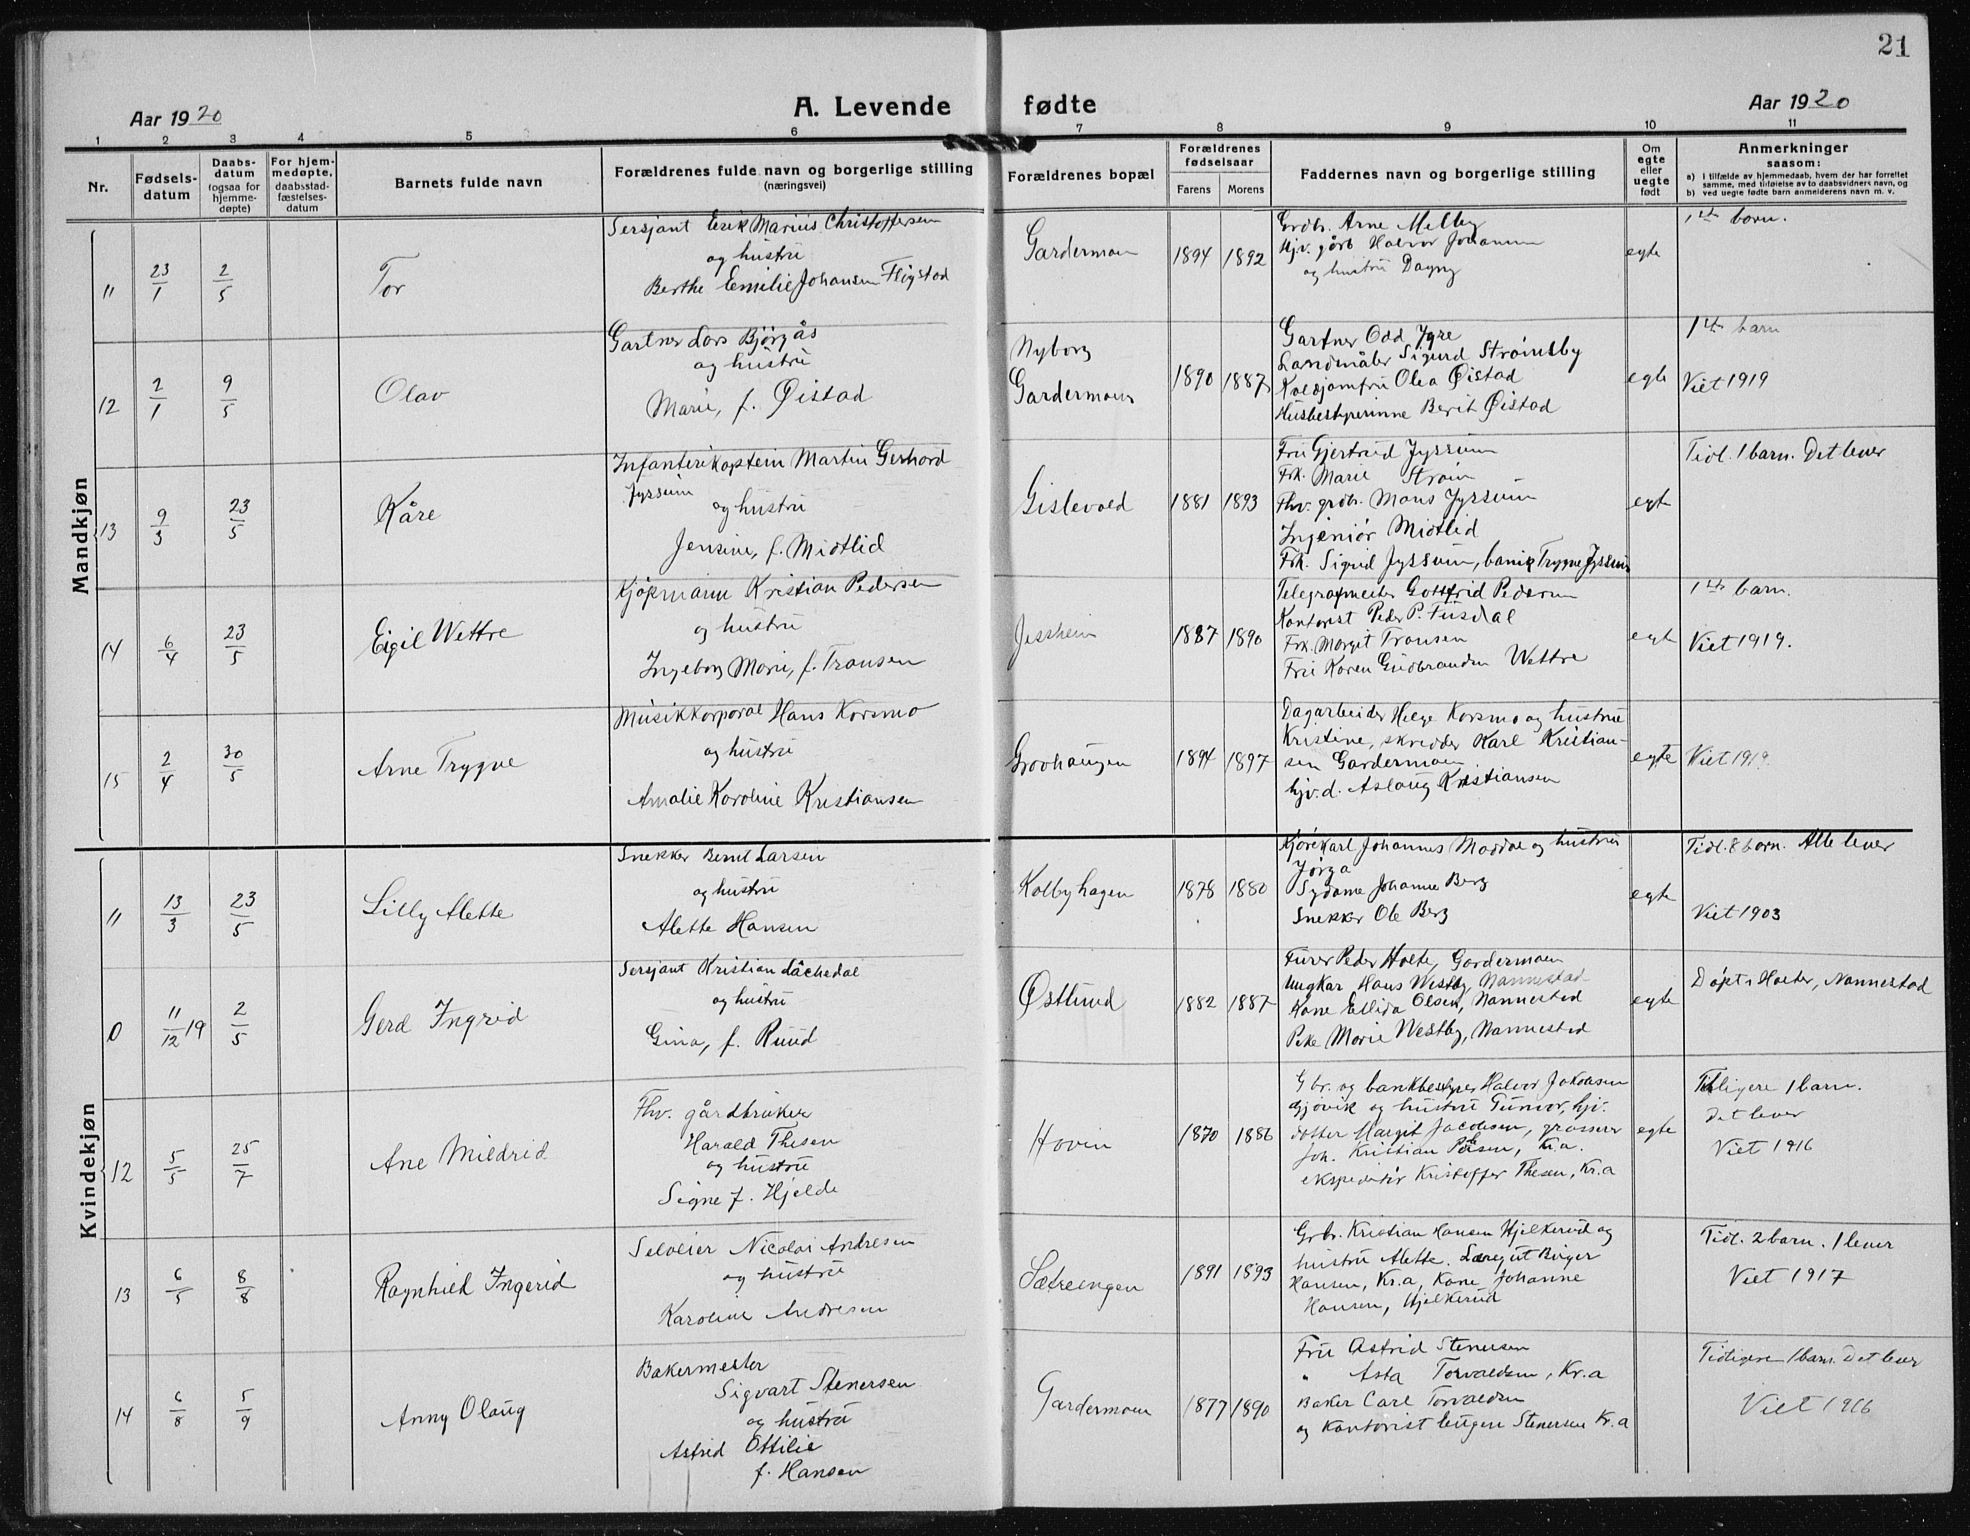 21
Aar 1920
A. Levende fødte
Aar 1920
1 2 3 4 5 6 7 8 9 10 11
Nr.
Fødsels-
datum
Daabs-
datum
(ogsaa for
hjemme-
døpte)
For hjem-
medøpte,
daabsstad-
fæstelses-
datum
Barnets fulde navn
Forældrenes fulde navn og borgerlige stilling
(næringsvei)
Forældrenes bopæl
Forældrenes
fødselsaar
Farens Morens
Faddernes navn og borgerlige stilling
Om
egte
eller
uegte
født
Anmerkninger
saasom:
a) i tilfælde av hjemmedaab, hvem der har forrettet
samme, med tilføielse av to daabsvidners navn, og
b) ved uegte fødte barn anmelderens navn m. v.
Mandkjøn
11 23/1 2/5 Tor
Sersjant Erik Marius Christoffersen
og hustru
Berthe Emilie Johansen Fligstad
Gardermoen 1894 1892
Grdbr. Arne Melby
Hjv. gårb Halvor Johansen
og hustru Dagny
egte
1ste barn.
12 2/1 9/5 Olav
Gartner Lars Bjørgås
og hustru
Marie, f. Øistad
Nyborg
Gardermoen 1890 1887
Gartner Odd Jgre
Landmåler Sigurd Strømsby
Koldjomfru Olea Øistad
Husbestyrerinne Berit Øistad
egte
1ste barn
Viet 1919
13 9/3 23/5 Kåre
Infanterikaptein Martin Gerhard
Jyssum
og hustru
Jensine, f. Midtlid
Gislevold 1881 1893
Fru Gjertrud Jyssum
Frk. Marie Strøm
Fhv. grdbr. Mons Jyssum
Ingeniør Midtlid
Frk. Sigrid Jyssum, bankf Trygve Jyssum
egte
Tidl. 1 barn. Det lever
14 6/4 23/5 Eigil Wettre
Kjøpmann Kristian Pedersen
og hustru
Ingeborg Marie, f. Transen
Jessheim 1887 1890
Telegrafmester Gottfrid Pedersen
Kontorist Peder P. Fusdal
Frk. Margit Transen
Fru Karen Gudbrandsen Wettre
egte
1ste barn.
Viet 1919.
15 2/4 30/5 Arne Trygve
Musikkorporal Hans Korsmo
og hustru
Amalie Karoline Kristiansen
Grovhaugen 1894 1897
Dagarbeider Helge Korsmo og hustru
Kristine, skredder Karl Kristian-
sen Gardermoen
hjv. d. Aslaug Kristiansen
egte
Viet 1919
Kvindekjøn
11 13/3 23/5 Lilly Alette
Snekker Bernt Larsen
og hustru
Alette Hansen
Kolbyhagen 1878 1880
Kjørekarl Johannes Moddal og hustru
Jørga
Sydame Johanne Berg
Snekker Ole Berg
egte
Tidl. 8 barn. Alle lever
Viet 1903
0 11/12 19 2/5 Gerd Ingrid
Sersjant Kristian Låchedal
og hustru
Gina, f. Ruud
Østlund 1882 1887
Furer Peder Holte, Gardermoen
Ungkar Hans Westby, Nannestad
Kone Ellida Olsen, Nannestad
Pike Marie Westby, Nannestad
egte
Døpt i Holter, Nannestad
12 5/5 25/7 Ane Mildrid
Fhv. gårdbruker
Harald Thesen
og hustru
Signe f. Hjelde
Hovin 1870 1886
Gbr. og bankbestyrer Halvor Jakobsen
Gjøvik og hustru Gunvor, hjv.
dotter Margit Jacobsen, grosserer
Joh. Kristian Polsen, Kr.a.
ekspeditør Kristoffer Thesen, Kr.a
egte
Tidligere 1 barn.
Det lever
Viet 1916
13 6/5 8/8 Ragnhild Ingerid
Selveier Nicolai Andresen
og hustru
Karoline Andresen
Sætreengen 1891 1893
Grbr. Kristian Hansen Hjelkerud og
hustru Alette. Birger
Hansen, Kr.a, Kone Johanne
Hansen, Hjelkerud
Tidl. 2 barn. 1 lever
Viet 1917
14 6/8 5/9 Anny Olaug
Bakermester
Sigvart Stenersen
og hustru
Astrid Ottilie
f. Hansen
Gardermoen 1877 1890
Fru Astrid Stenersen
" Asta Torvaldsen, Kr.a
Baker Carl Torvaldsen
og Kontorist Eugen Stenersen Kr.a
Tidligere 1 barn. Det lever
Viet 1916